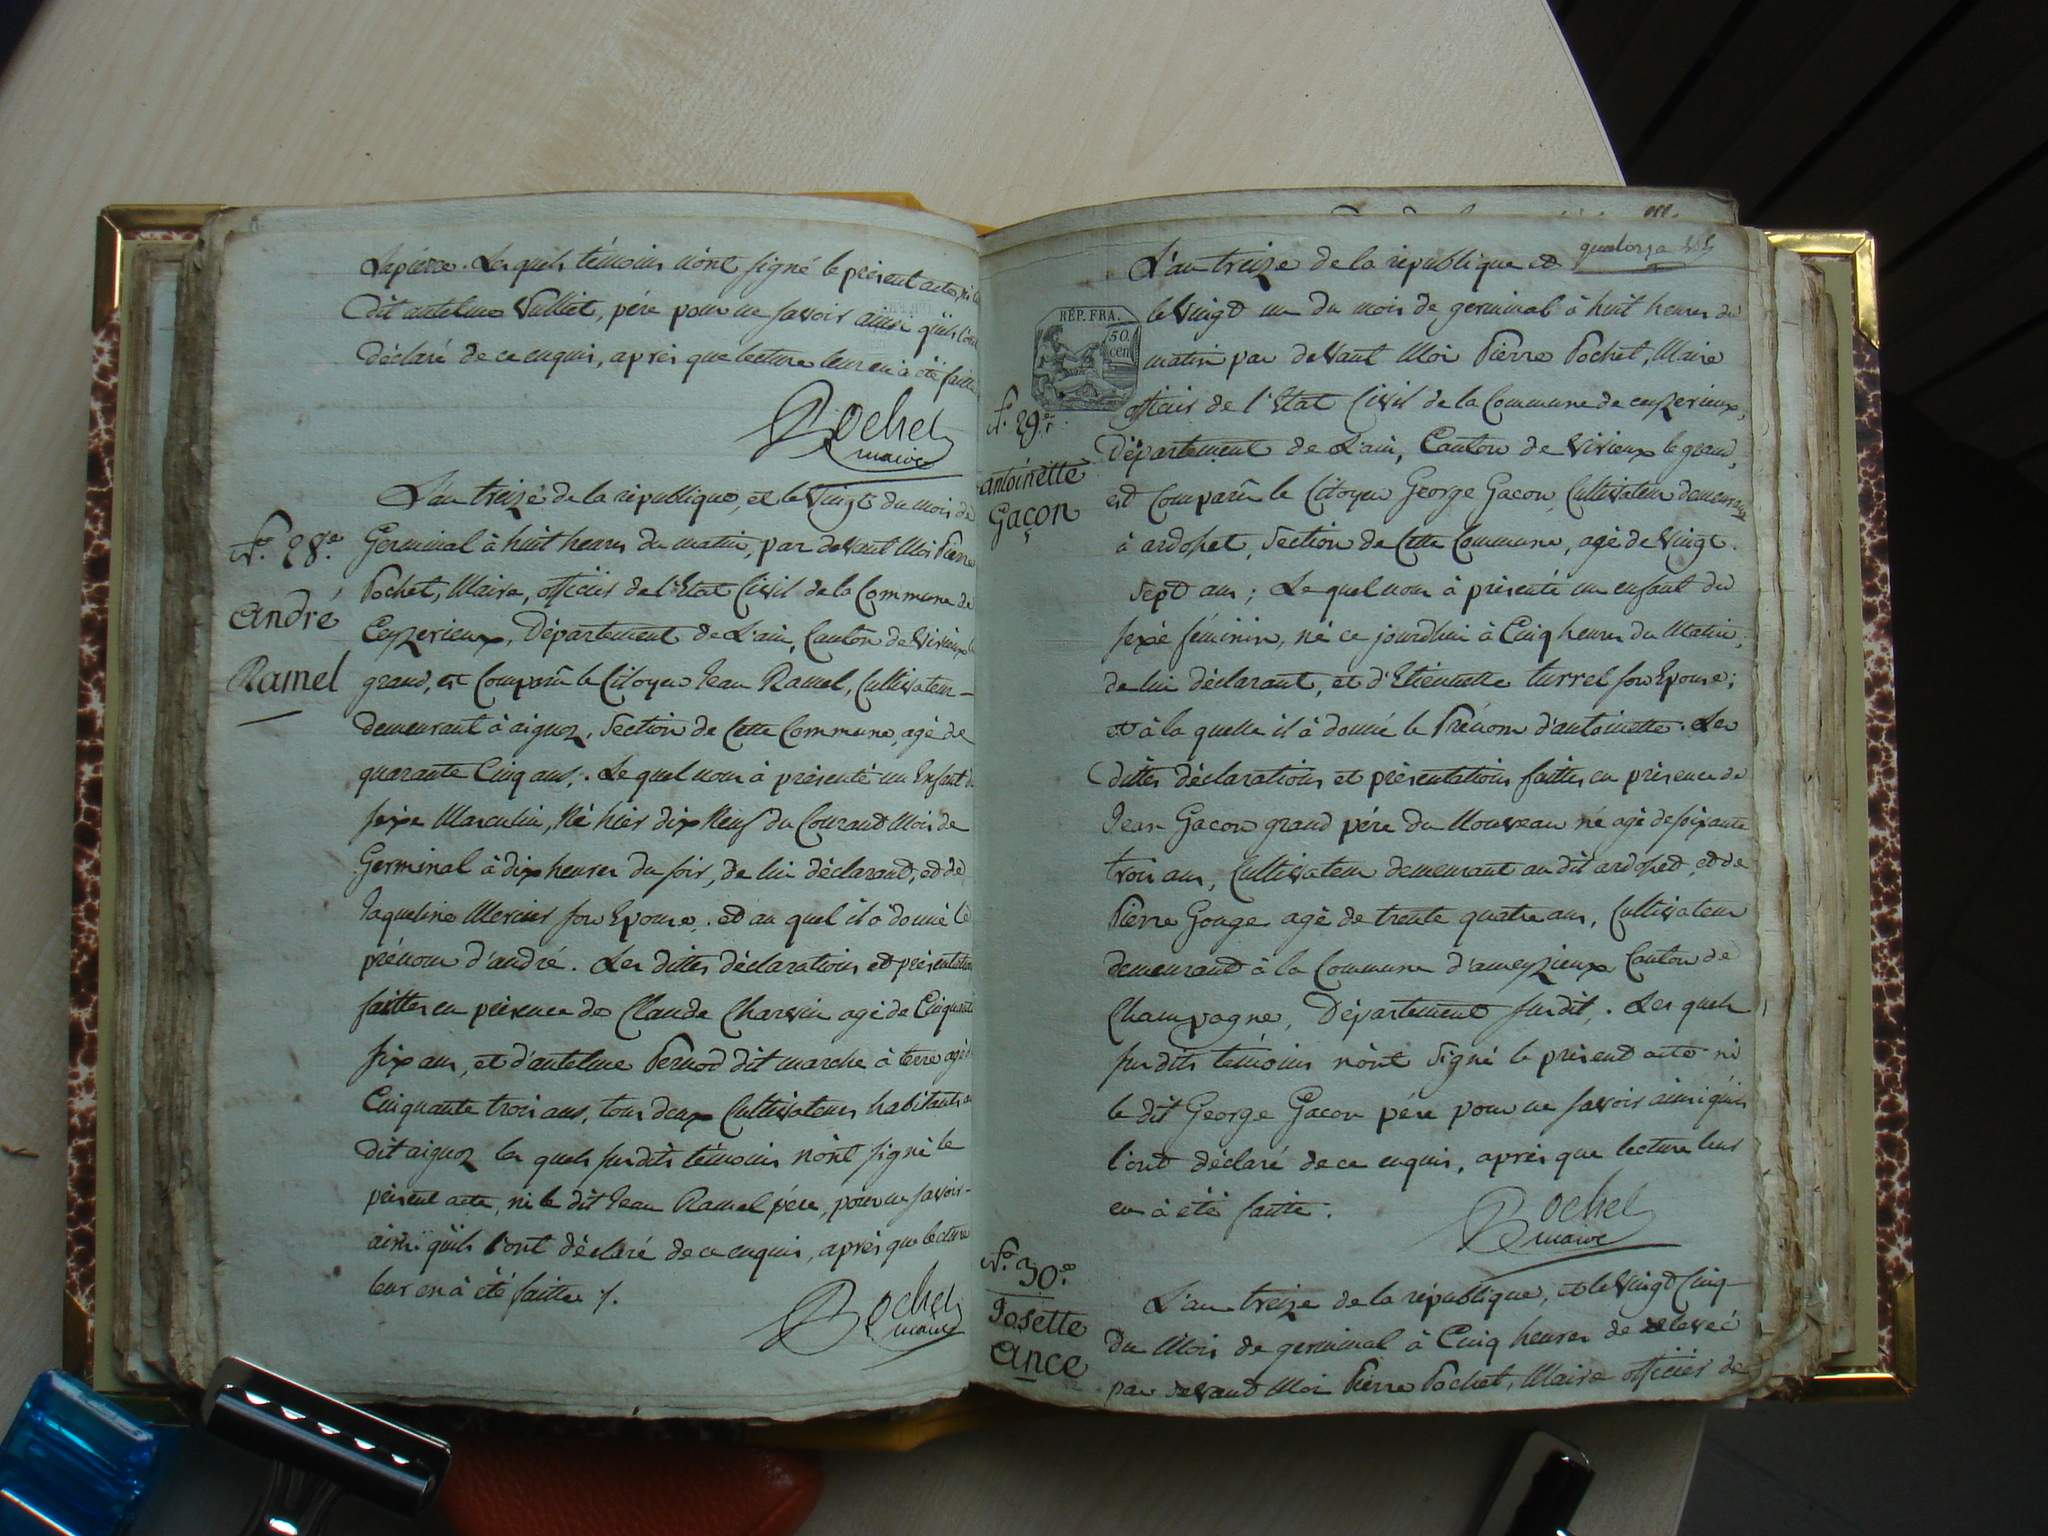 Lapierre. Les quels témoins n'ont signé le présent acte, ni le
dit antelme Vulliet, pére pour ne savoir ainsi qu'ils l'ont
déclaré de ce enquis, aprés que lecture leur en à été faitte
Pochet
maire
L'an treize de la république, et le Vingt du mois de
N.º 28.e
Germinal à huit heures du matin, par devant Moi Pierre
Pochet, Maire, officier de l'Etat Civil de la Commune de
André
Ceyzerieux, Département de L'ain, Canton de Virieux le
Ramel
grand, est Comparû le Citoyen Jean Ramel, Cultivateur
demeurant à aignoz, Section de Cette Commune, agé de
quarante Cinq ans; Le quel nous à présenté un Enfant du
sexe Masculin, Né hier dix Neuf du Courant Mois de
Germinal à dix heures du soir, de lui déclarant, et de
Jaqueline Mercier son Epouse, et au quel il à donné le
prénom d'andré. Les dittes déclarations et présentations
faittes en présence de Claude Charvin agé de Cinquante
six ans, et d'antelme Pernod dit marche à terre agé de
Cinquante trois ans, tous deux Cultivateurs habitants au
dit aignoz les quels susdits témoins n'ont signé le
présent acte, ni le dit Jean Ramel pére, pour ne savoir
ainsi qu'ils l'ont déclaré de ce enquis, aprés que lecture
leur en à été faitte /.
Pochet
maire
L'an treize de la république et
quatorze
REP. FRA.
50
cen
le Vingt un du mois de germinal à huit heures du
matin par devant Moi Pierre Pochet, Maire
officier de l'Etat Civil de la Commune de ceyzerieux,
N.º 29.e
Département de L'ain, Canton de Virieux le grand,
antoinette
est Comparû le Citoyen George Gacon, Cultivateur demeurant
Gaçon
à ardosset, Section de Cette Commune, agé de Vingt
Sept ans; Le quel nous à présenté un enfant du
sexe féminin, né ce jourdhui à Cinq heures du Matin,
de lui déclarant, et d'Etiennette turrel son Epouse;
et à la quelle il à donné le Prénom d'antoinette. Les
dittes déclarations et présentations faittes en présence de
Jean Gacon grand pére du Nouveau né agé de soixante
trois ans, Cultivateur demeurant au dit ardosset, et de
Pierre Gouge agé de trente quatre ans, Cultivateur
demeurant à la Commune d'ameyzieux Canton de
Champagne, Département susdit. Les quels
susdits témoins n'ont Signé le présent acte ni
le dit George Gacon pére pour ne savoir ainsi qu'ils
l'ont déclaré de ce enquis, aprés que lecture leur
en à été faitte.
Pochet
maire
N.º 30.e
L'an treize de la république, et le Vingt Cinq
Josette
du Mois de germinal à Cinq heures de relevée
Ance
par devant Moi Pierre Pochet, Maire officier de